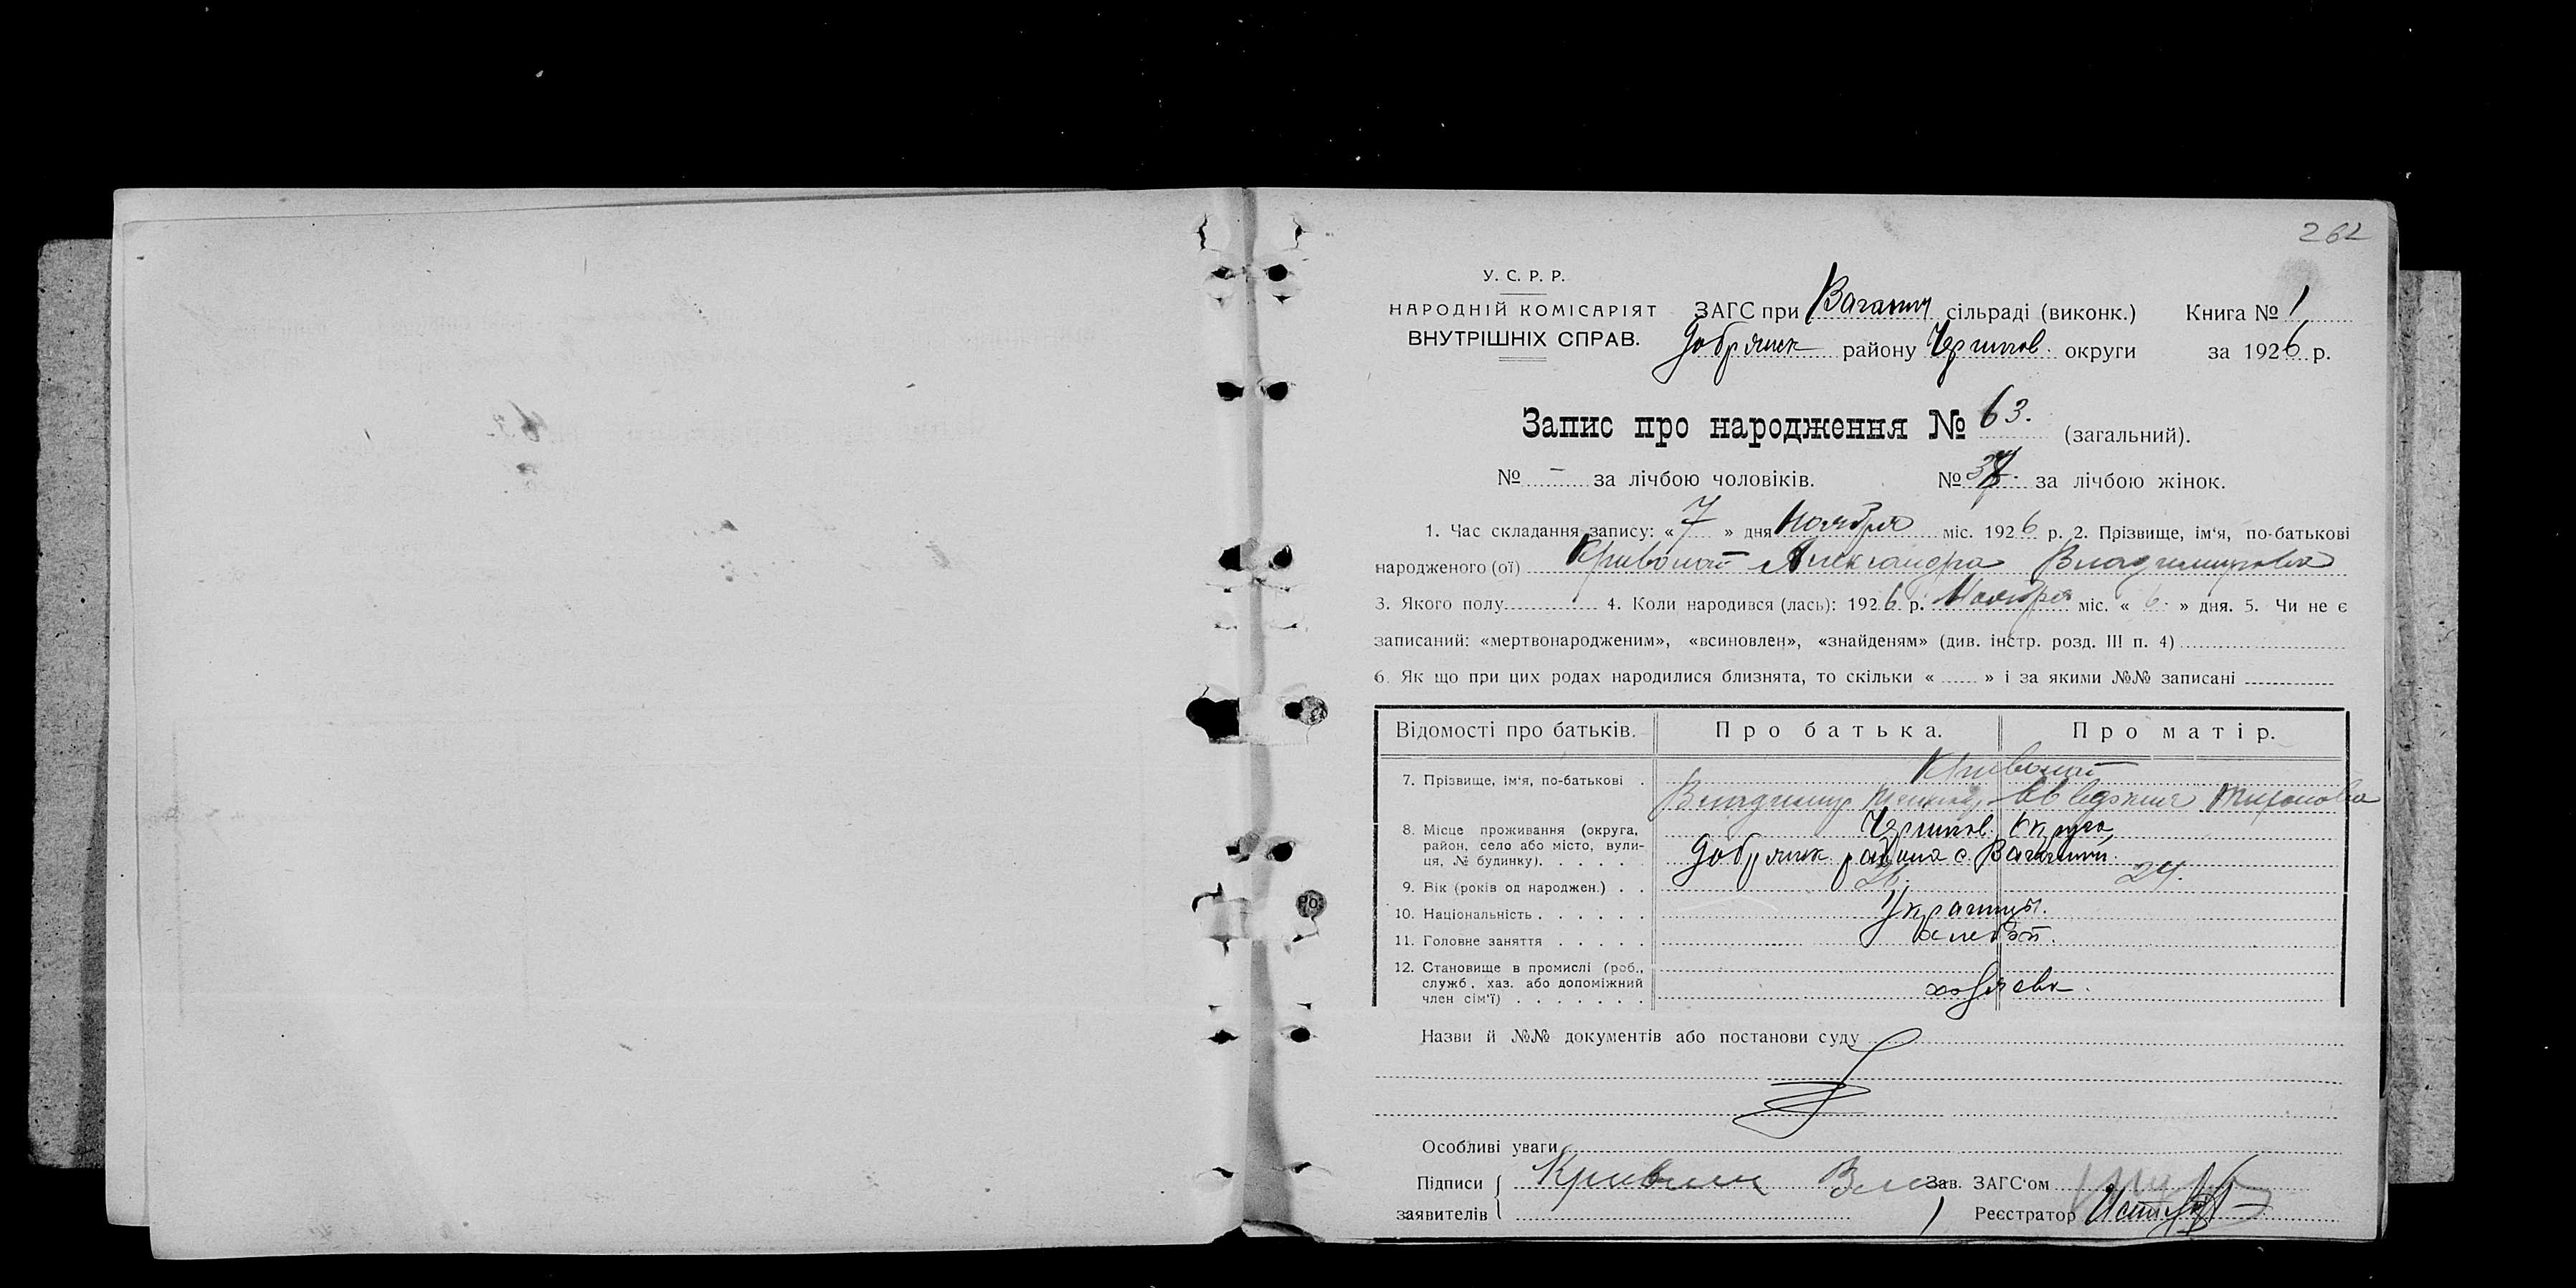 262
У. С. Р. Р.
НАРОДНІЙ КОМІСАРІЯТ
ВНУТРІШНІХ СПРАВ.
ЗАГС при Ваганич сільраді (виконк.) Книга № 1
Добрянск району Чернигов. округи за 1926 р.
Запис про народження № 63. (загальний).
№ – за лічбою чоловіків. № 37. за лічбою жінок.
1. Час складання запису: « 7 » дня Ноября міс. 1926 р. 2. Прізвище, ім'я, по-батькові
народженого (ої) Александра Владимировна
3. Якого полу 4. Коли народився (лась): 1926 р. Ноября міс. « 6 » дня. 5. Чи не є
записаний: «мертвонародженим», «всиновлен», «знайденям» (див. інстр. розд. III п. 4)
6. Як що при цих родах народилися близнята, то скільки « » і за якими №№ записані
Відомості про батьків. Про батька. Про матір.
7. Прізвище, ім'я, по-батькові
Владимир
8. Місце проживання (округа, Чернигов. округа,
район, село або місто, вули- Добрянск. района с. Ваганичи.
ця, № будинку).
9. Вік (років од народжен.) 26. 24.
10. Національність Украинцы.
11. Головне заняття хлебоп.
12. Становище в промислі (роб.,
служб., хаз. або допоміжний
член сім'ї)
Назви й №№ документів або постанови суду
Особливі уваги
Підписи Зав. ЗАГС'ом
заявителів Реєстратор